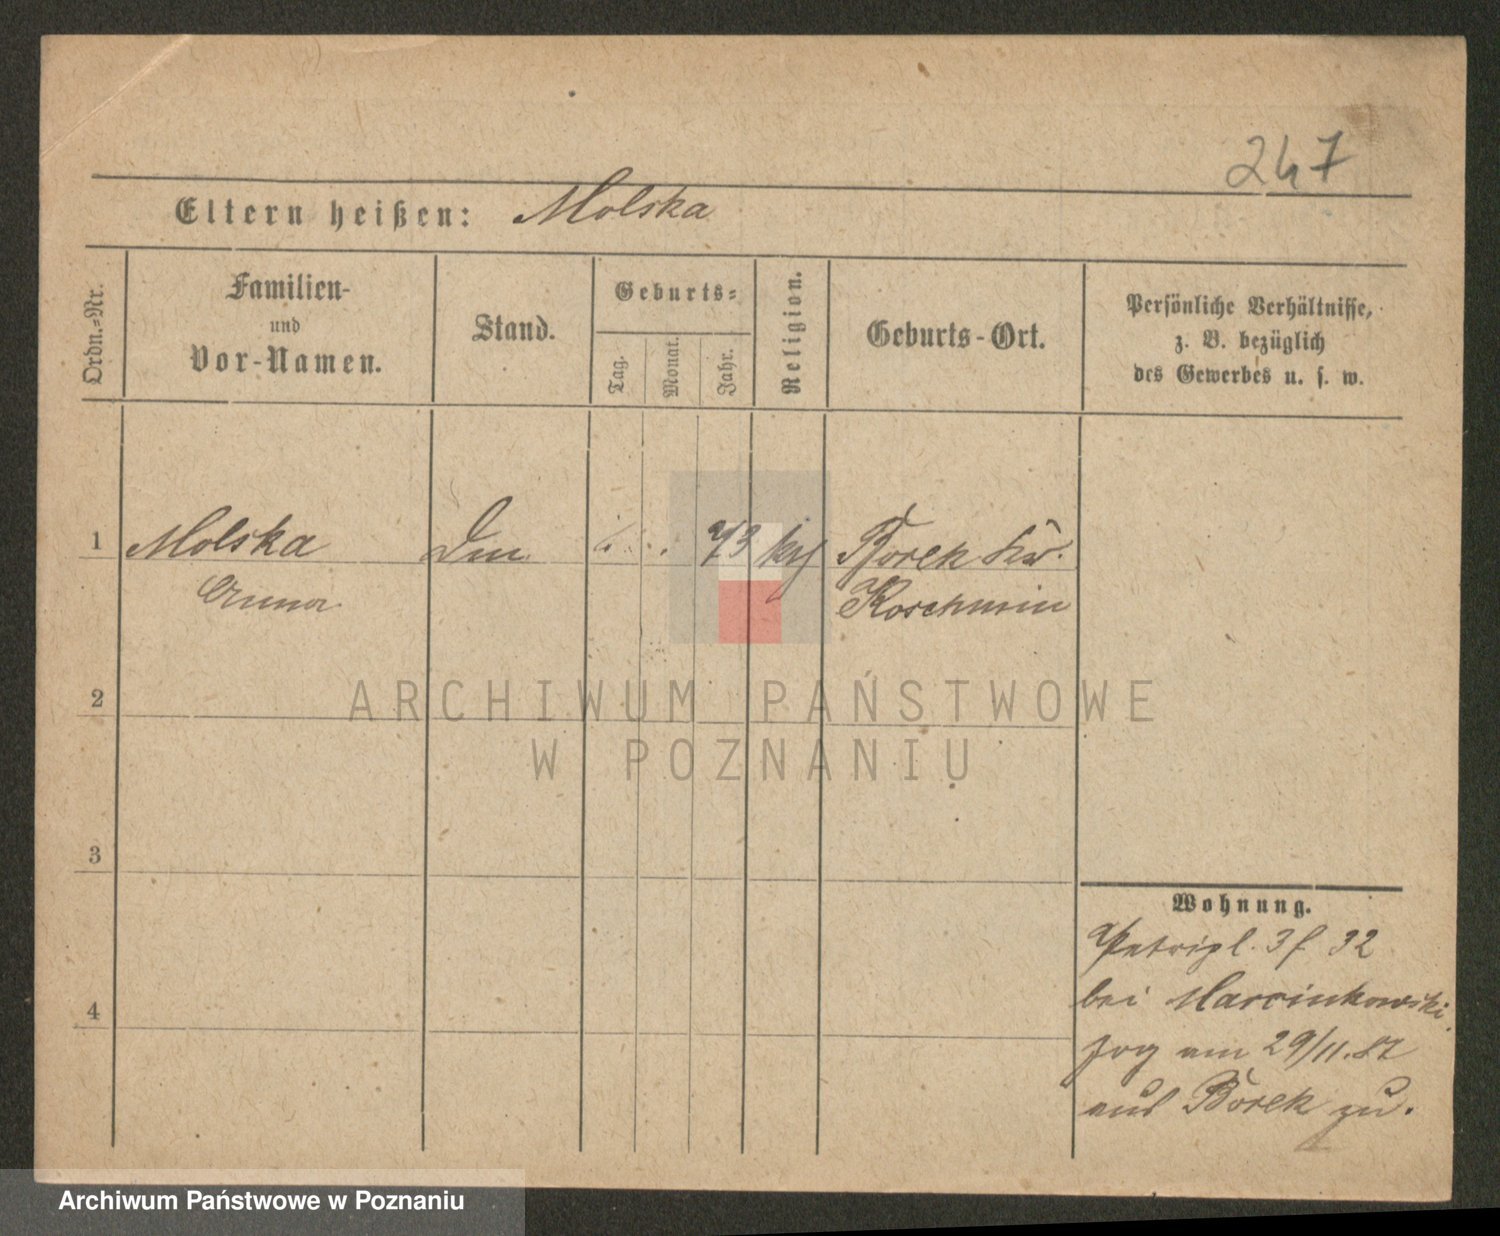 247
Eltern heißen: Molska
Ordn.-Nr.
Familien-
und
Vor-Namen.
Stand.
Geburts-
Tag.
Monat.
Jahr.
Religion.
Geburts-Ort.
Persönliche Verhältnisse,
z. B. bezüglich
des Gewerbes u. s. w.
1 Molska 73 Borek
Anna Koschmin
2
ARCHIWUM PAŃSTWOWE
W POZNANIU
3
4
Wohnung.
Petripl. 32
bei Marcinkowski
zog am 29/11.87
aus Borek zu.
Archiwum Państwowe w Poznaniu